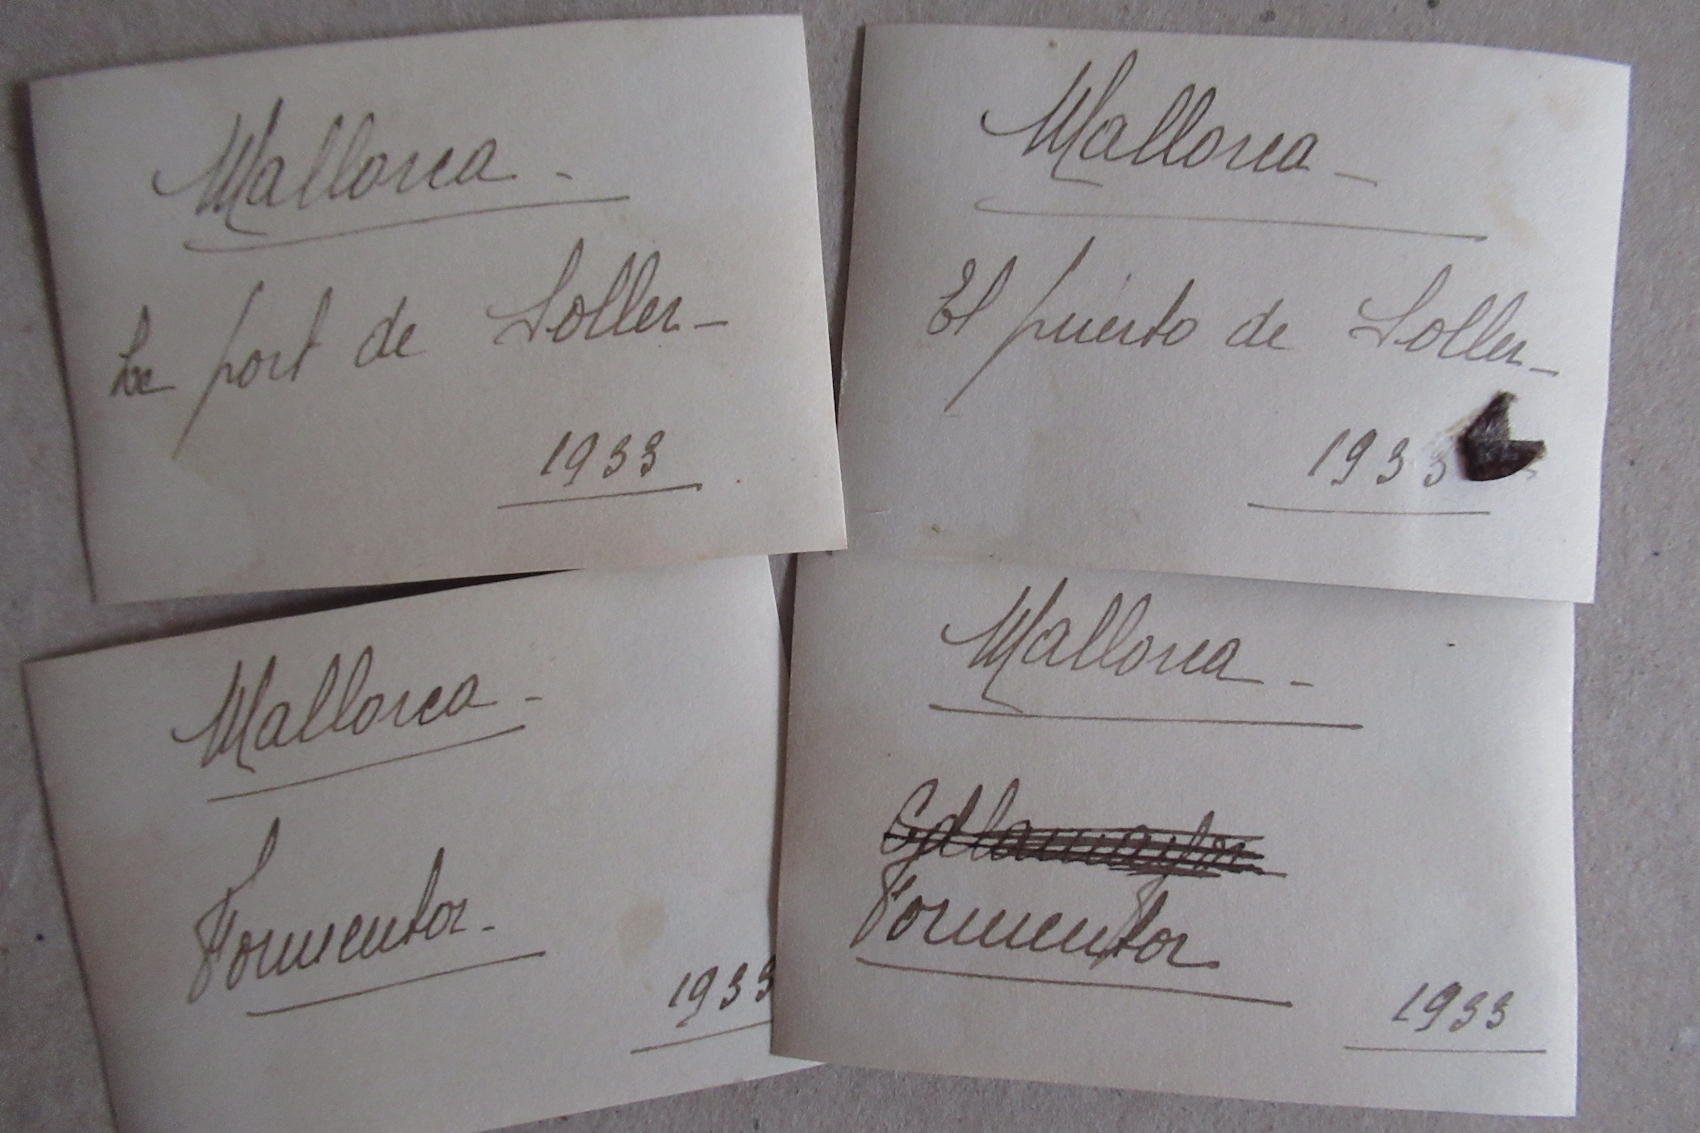 Mallorca -
Le port de Soller -
1933
Mallorca -
El puerto de Soller -
1933
Mallorca -
Formentor -
1933
Mallorca -
Formentor
1933